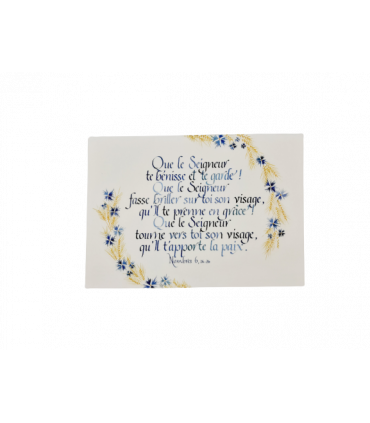 Que le Seigneur
te bénisse et te garde !
Que le Seigneur
fasse briller sur toi son visage,
qu'Il te prenne en grâce !
Que le Seigneur
tourne vers toi son visage,
qu'Il t'apporte la paix.
Nombres 6,